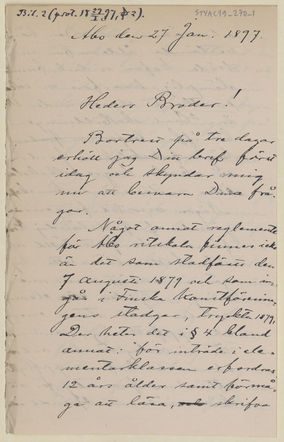 Bil. 2 (prot. 18 27/2 97, § 2).
STYAC19_270_1
Åbo den 27 Jan. 1897.
Heders Broder!
Bortrest på tre dagar
erhöll jag Ditt bref först
idag och skyndar mig
nu att besvara Dina frå-
gor.
Något annat reglemente
för Åbo ritskola finnes icke
än det som stadfästs den
7 augusti 1879 och som in-
i Finska Konstförenin-
gens stadgar, tryckta 1879.
Der heter det i § 4 bland
annat: "för inträde i ele-
mentarklassen erfordras
12 års ålder samt förmå-
ga att läsa, och skrifva